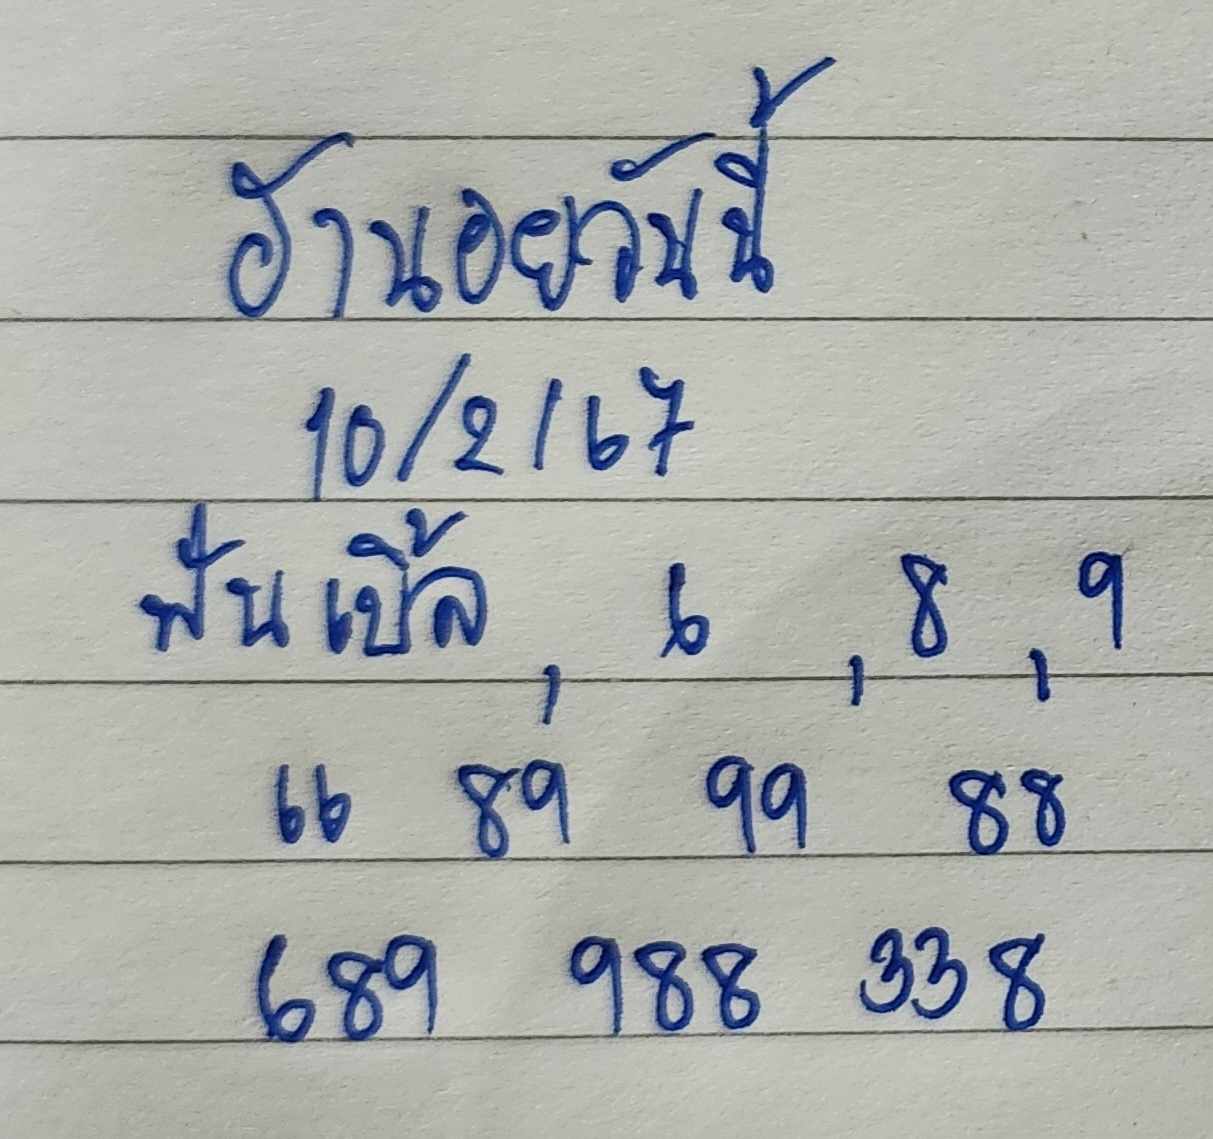 ฮานอยวันนี้
10/2/67
ฟันเบิ้ล, 6, 8, 9
66 89 99 88
689 988 338